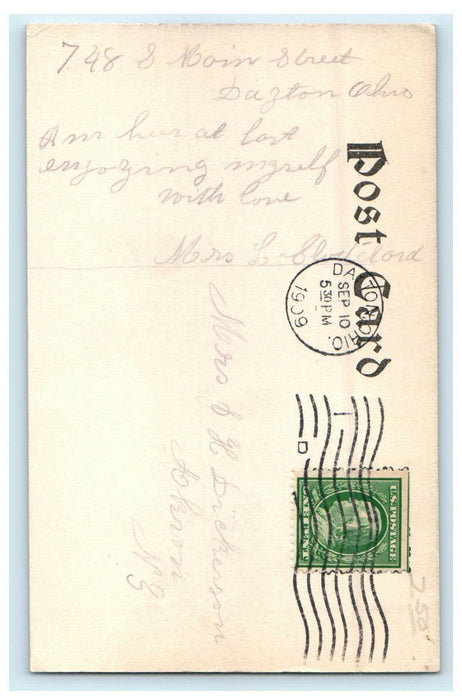 748 S Main Street
Dayton Ohio
Am heer at last
enjoying myself
with love
Mrs L.
Post Card
DAYTON, OHIO.
SEP 10
5:30 PM
1909
Mrs J H Dickerson
Akron
N.Y.
1
D
U.S. POSTAGE
ONE CENT
2.50